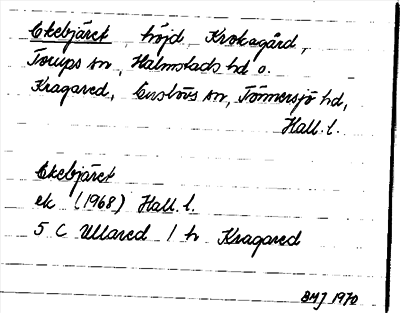 Ekebjäret, höjd, Krokagård,
Torups sn, Halmstads hd o.
Kragared, Enslövs sn, Tönnersjö hd,
Hall. l.
Ekebjäret
ek (1968) Hall. l.
5 C Ullared 1 h Kragared
BMJ 1970